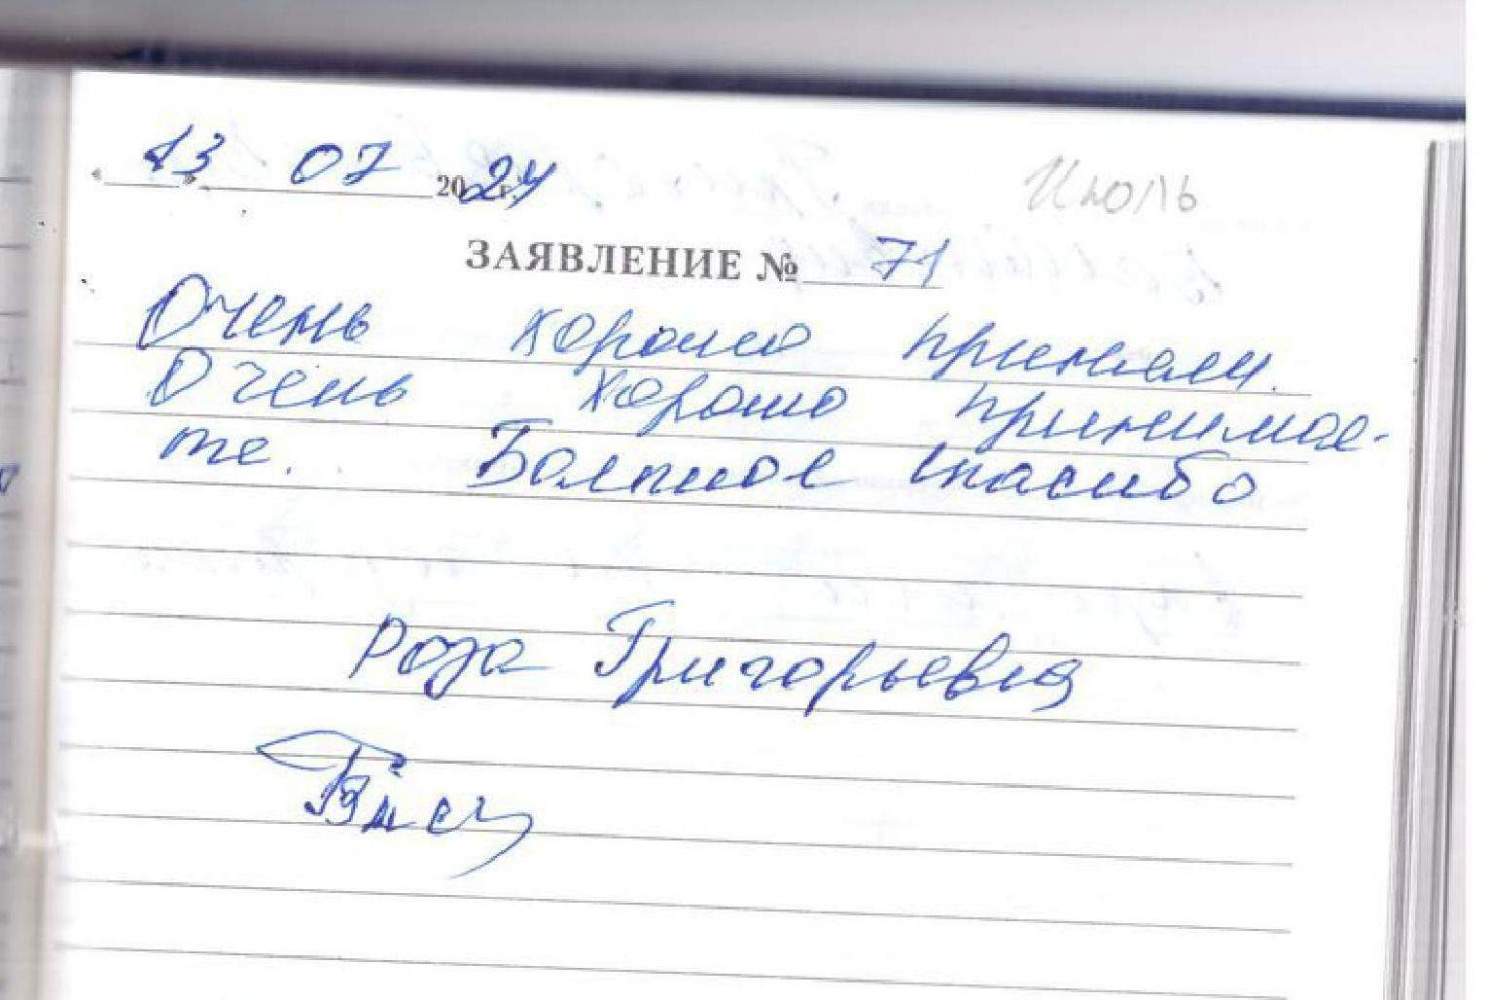 « 13 » 07 2024 г.
Июль
ЗАЯВЛЕНИЕ № 71
Очень хорошо приняли.
Очень хорошо принимае-
те. Болшое спасибо
Роза Григорьевна